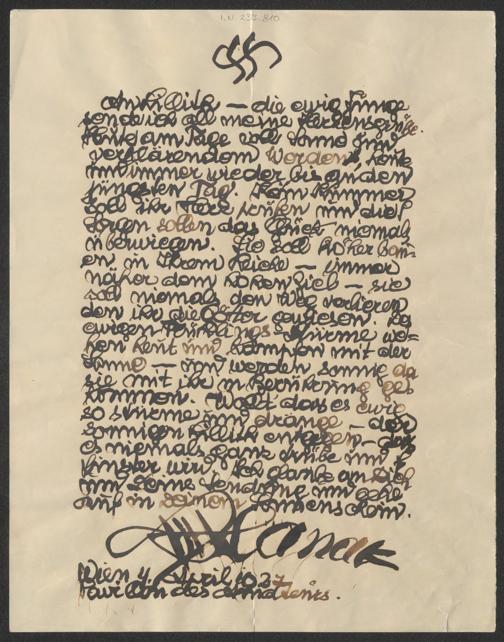 I.N. 233.810
— die ewig Junge
sende ich all meine Herzensgrüße.
Heute am Tage voll Sonne im
verklärendem Werden, heute
und immer wieder bis an den
jüngsten Tag. Kein Kummer
soll ihr Herz trüben und die
Sorgen sollen das Glück niemals
überwiegen. Sie soll höher bau-
en in Ihrem Reiche — immer
näher dem hohen — sie
soll niemals den Weg verlieren
den ihr die Götter gewiesen.
ewigen Frühlings-Stürme we-
hen heut und kämpfen mit der
Sonne — und werden sonnig da
sie mit ihr in Berührung ge
kommen. dass es ewig
so stürme und dränge – der
sonnigen Lilith entgegen – dass
es niemals ganz trübe und
finster wird. Ich danke an Dich
und Deine Sendung und gehe
auf in seinem Sonnenschein.
Hanak
Wien 4. April 1927
Pavillon des